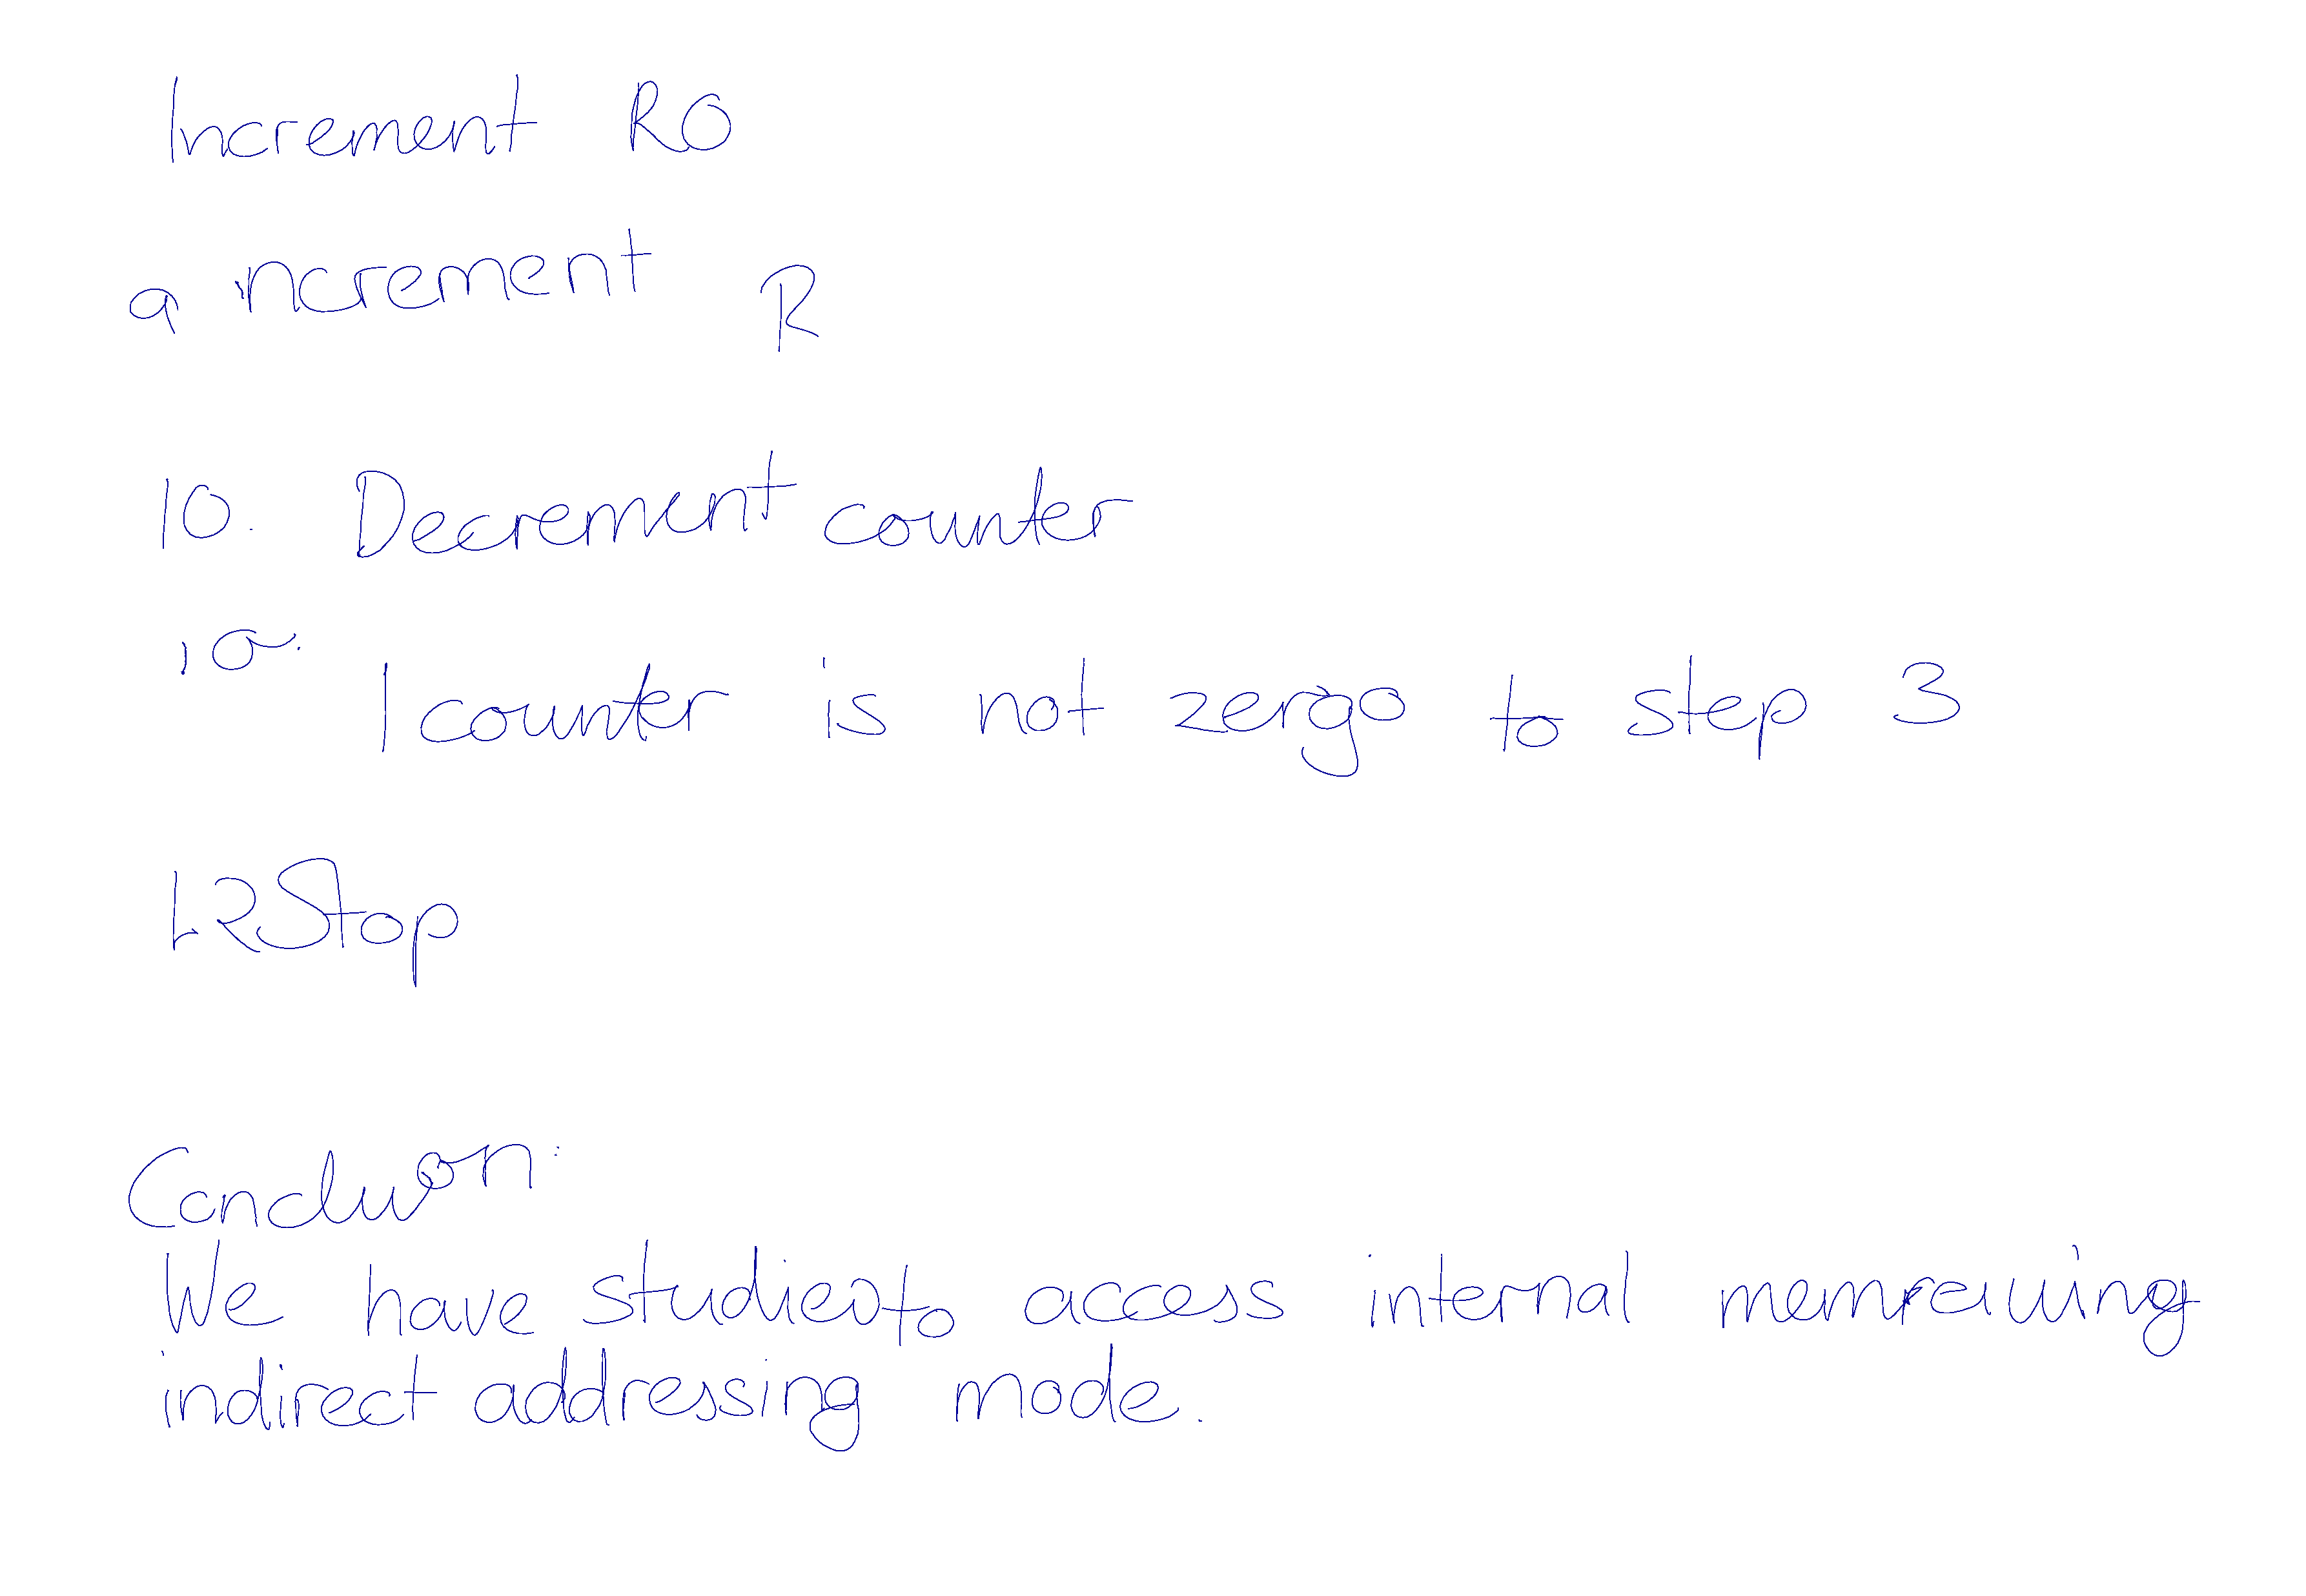 Increment R0
9 increment R
10. Decrement counter
10.
1 counter is not zergo to step 3
12 Stop
Conduon:
We have studied to access internal
indirect addressing mode.